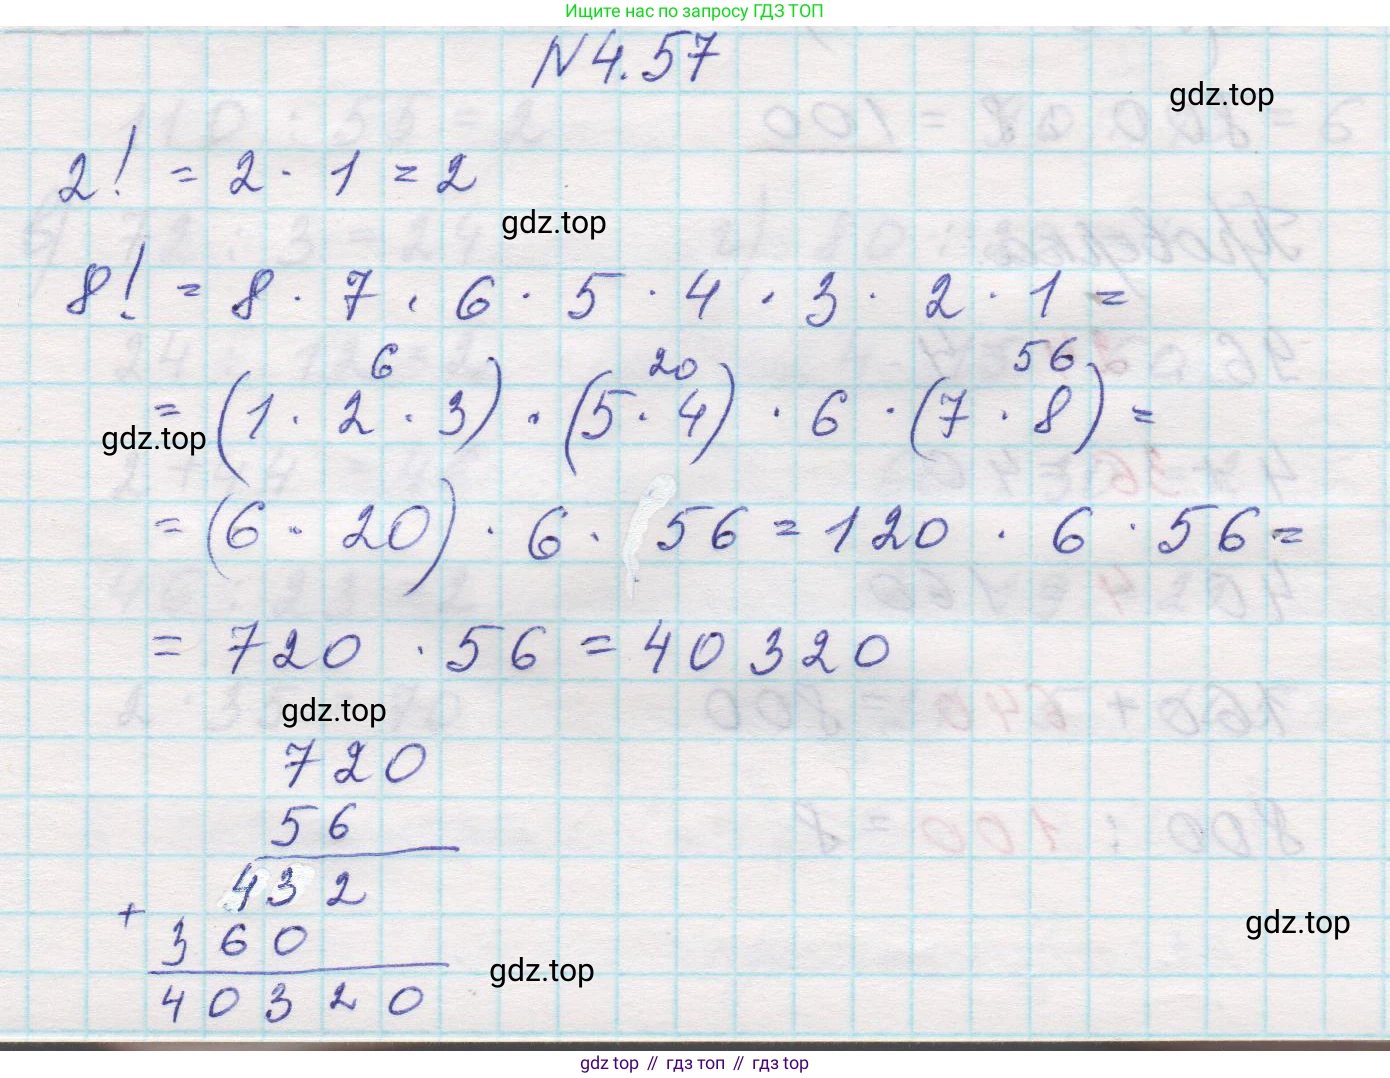 Ищите нас по запросу ГДЗ ТОП
N 4.57
gdz.top
2! = 2 · 1 = 2
gdz.top
8! = 8 · 7 · 6 · 5 · 4 · 3 · 2 · 1 =
6 20 56
= (1 · 2 · 3) · (5 · 4) · 6 · (7 · 8) =
gdz.top
= (6 · 20) · 6 · 56 = 120 · 6 · 56 =
= 720 · 56 = 40320
gdz.top
720
56
432
+
360
40320
gdz.top
gdz.top
gdz top // гдз топ // гдз top